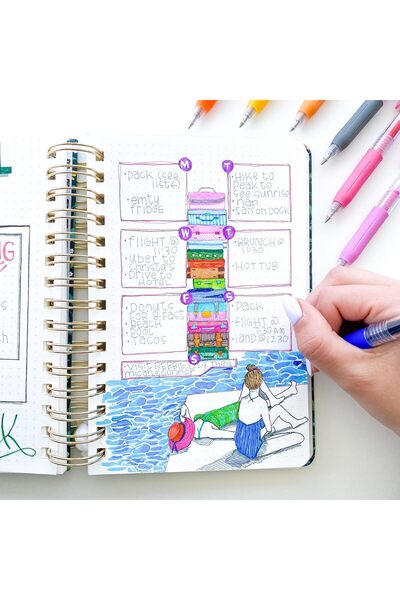 L
NG
h
k
M
• PACK (SEE
LIST!)
• EMTY
FRIDGE
T
• HIKE TO
PEAK TO
SEE SUNRISE
• NAP
• TAN ON DOCK
W
• FLIGHT @
11:30
• UBER TO
CHRISTA'S
• DRIVE TO
HOTEL
T
• BRUNCH @
11:30
• HOT TUB
F
• DONUTS
BEACH
• BOAT
• TACOS
S
• PACK
• FLIGHT @
7:30AM
• LAND @ 12:30
S
• VISIT